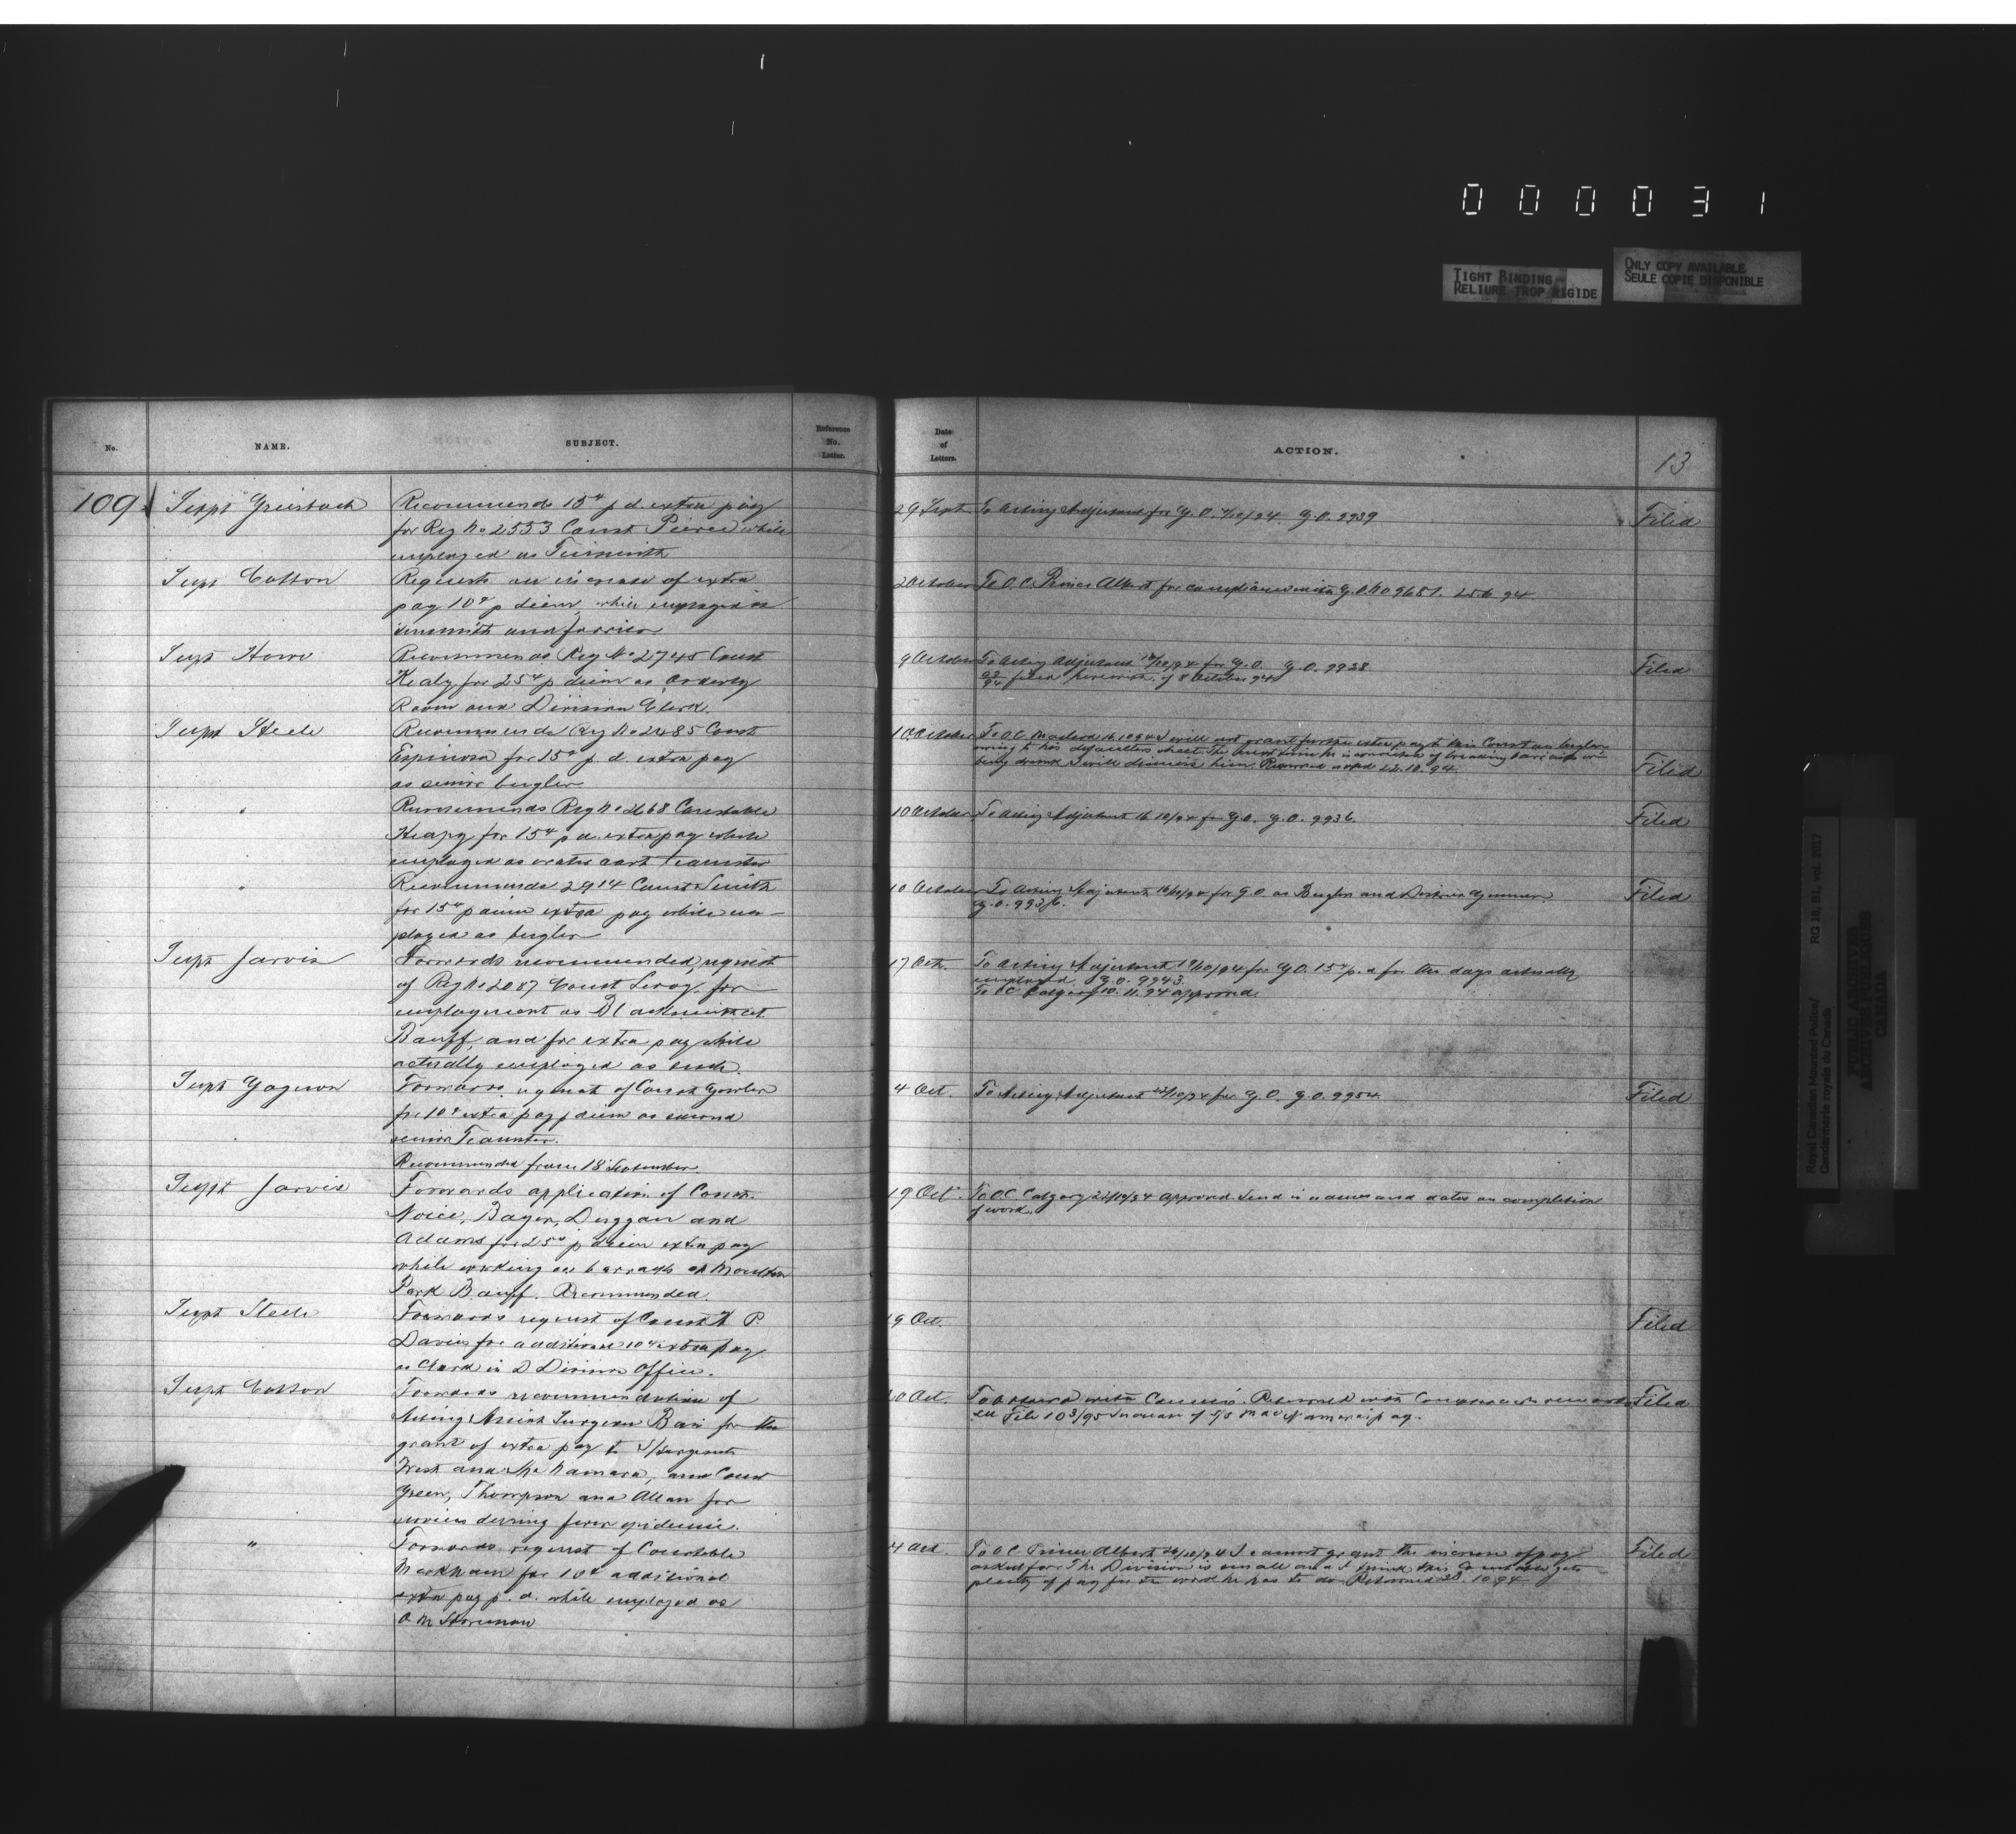 000031
TIGHT BINDING
RELIURE TROP RIGIDE
ONLY COPY AVAILABLE
SEULE COPIE DISPONIBLE
No.
NAME.
SUBJECT.
Reference
No.
Letter.
Date
of
Letters.
ACTION.
13
109
Supt Griesbach
Recommends 15¢ p d. extra pay
for Reg No 2553 Const Peirce while
employed as Tinsmith
29 Sept
To Acting Adjutant for G.O. G.O. 9939
Filed
Supt Cotton
Requests an increase of extra
pay 10¢ p diem while employed as
tinsmith and farrier
2 October
To O.C. Prince Albert for compliance with G.O. No 9681. 25.6.94.
Supt Howe
Recommends Reg No 2745 Const
Healy for 25¢ p diem as Orderly
Room and Division Clerk.
9 October
To Acting Adjutant for G.O. G.O. 9938
filed herewith of 8 October 94
Filed
Supt Steele
Recommends Reg No 2485 Const
Espinosa for 15¢ p. d. extra pay
as senior bugler
10 October
To O.C. Macleod 16.10.94 I will not grant further extra pay to this Const as bugler
owing to his defaulters sheet. The next time he is convicted of breaking barracks or
being drunk I will dismiss him. Returned noted 22.10.94.
Filed
"
Recommends Reg No 2668 Constable
Heapy for 15¢ p d. extra pay while
employed as water cart teamster
10 October
To Acting Adjutant 16/10/94 for G.O. G.O. 9936.
Filed
"
Recommends 2914 Const Smith
for 15¢ p diem extra pay while em-
ployed as bugler
10 October
To Acting Adjutant 16/10/94 for G.O. as Bugler and
G.O. 9936.
Filed
Supt Jarvis
Forwards recommended, request
of Reg No 2087 Const Leroy for
employment as Blacksmith at
Banff, and for extra pay while
actually employed as such.
17 Oct.
To Acting Adjutant 19/10/94 for G.O. 15¢ p. d for the days actually
employed. G.O. 9943.
To OC Calgary 10.11.94 approved.
Supt Gagnon
Forwards request of Const Gowler
for 10¢ extra pay p diem as second
senior Teamster.
Recommended from 18 September.
4 Oct.
To Acting Adjutant for G.O. G.O. 9954
Filed
Supt Jarvis
Forwards application of Consts.
Noice, Bayer, Duggan and
Adams for 25¢ p diem extra pay
while working on barracks at Mountain
Park Banff. Recommended.
19 Oct.
To OC Calgary 22/10/94 approved. Send in names and dates on completion
of work.
Supt Steele
Forwards request of Const H P.
Davies for additional 10¢ extra pay
as Clerk in D Division Office.
19 Oct.
Filed
Supt Cotton
Forwards recommendation of
Acting Assist Surgeon Bain for the
grant of extra pay to S/Sergeants
West and McNamara, and Const
Green, Thompson and Allan for
services during fever epidemic.
20 Oct.
Returned with
see File 103/95 Increase of S/S MacNamara's pay.
Filed
"
Forwards request of Constable
Markham for 10¢ additional
extra pay p. d. while employed as
Q M Storeman
To OC Prince Albert I cannot grant the increase of pay
asked for. The Division is small and I think this Constable gets
plenty of pay for the work he has to do. Returned 28.10.94
Filed
Royal Canadian Mounted Police/
Gendarmerie royale du Canada
RG 18, B.1, vol. 2017
PUBLIC ARCHIVES
ARCHIVES PUBLIQUES
CANADA